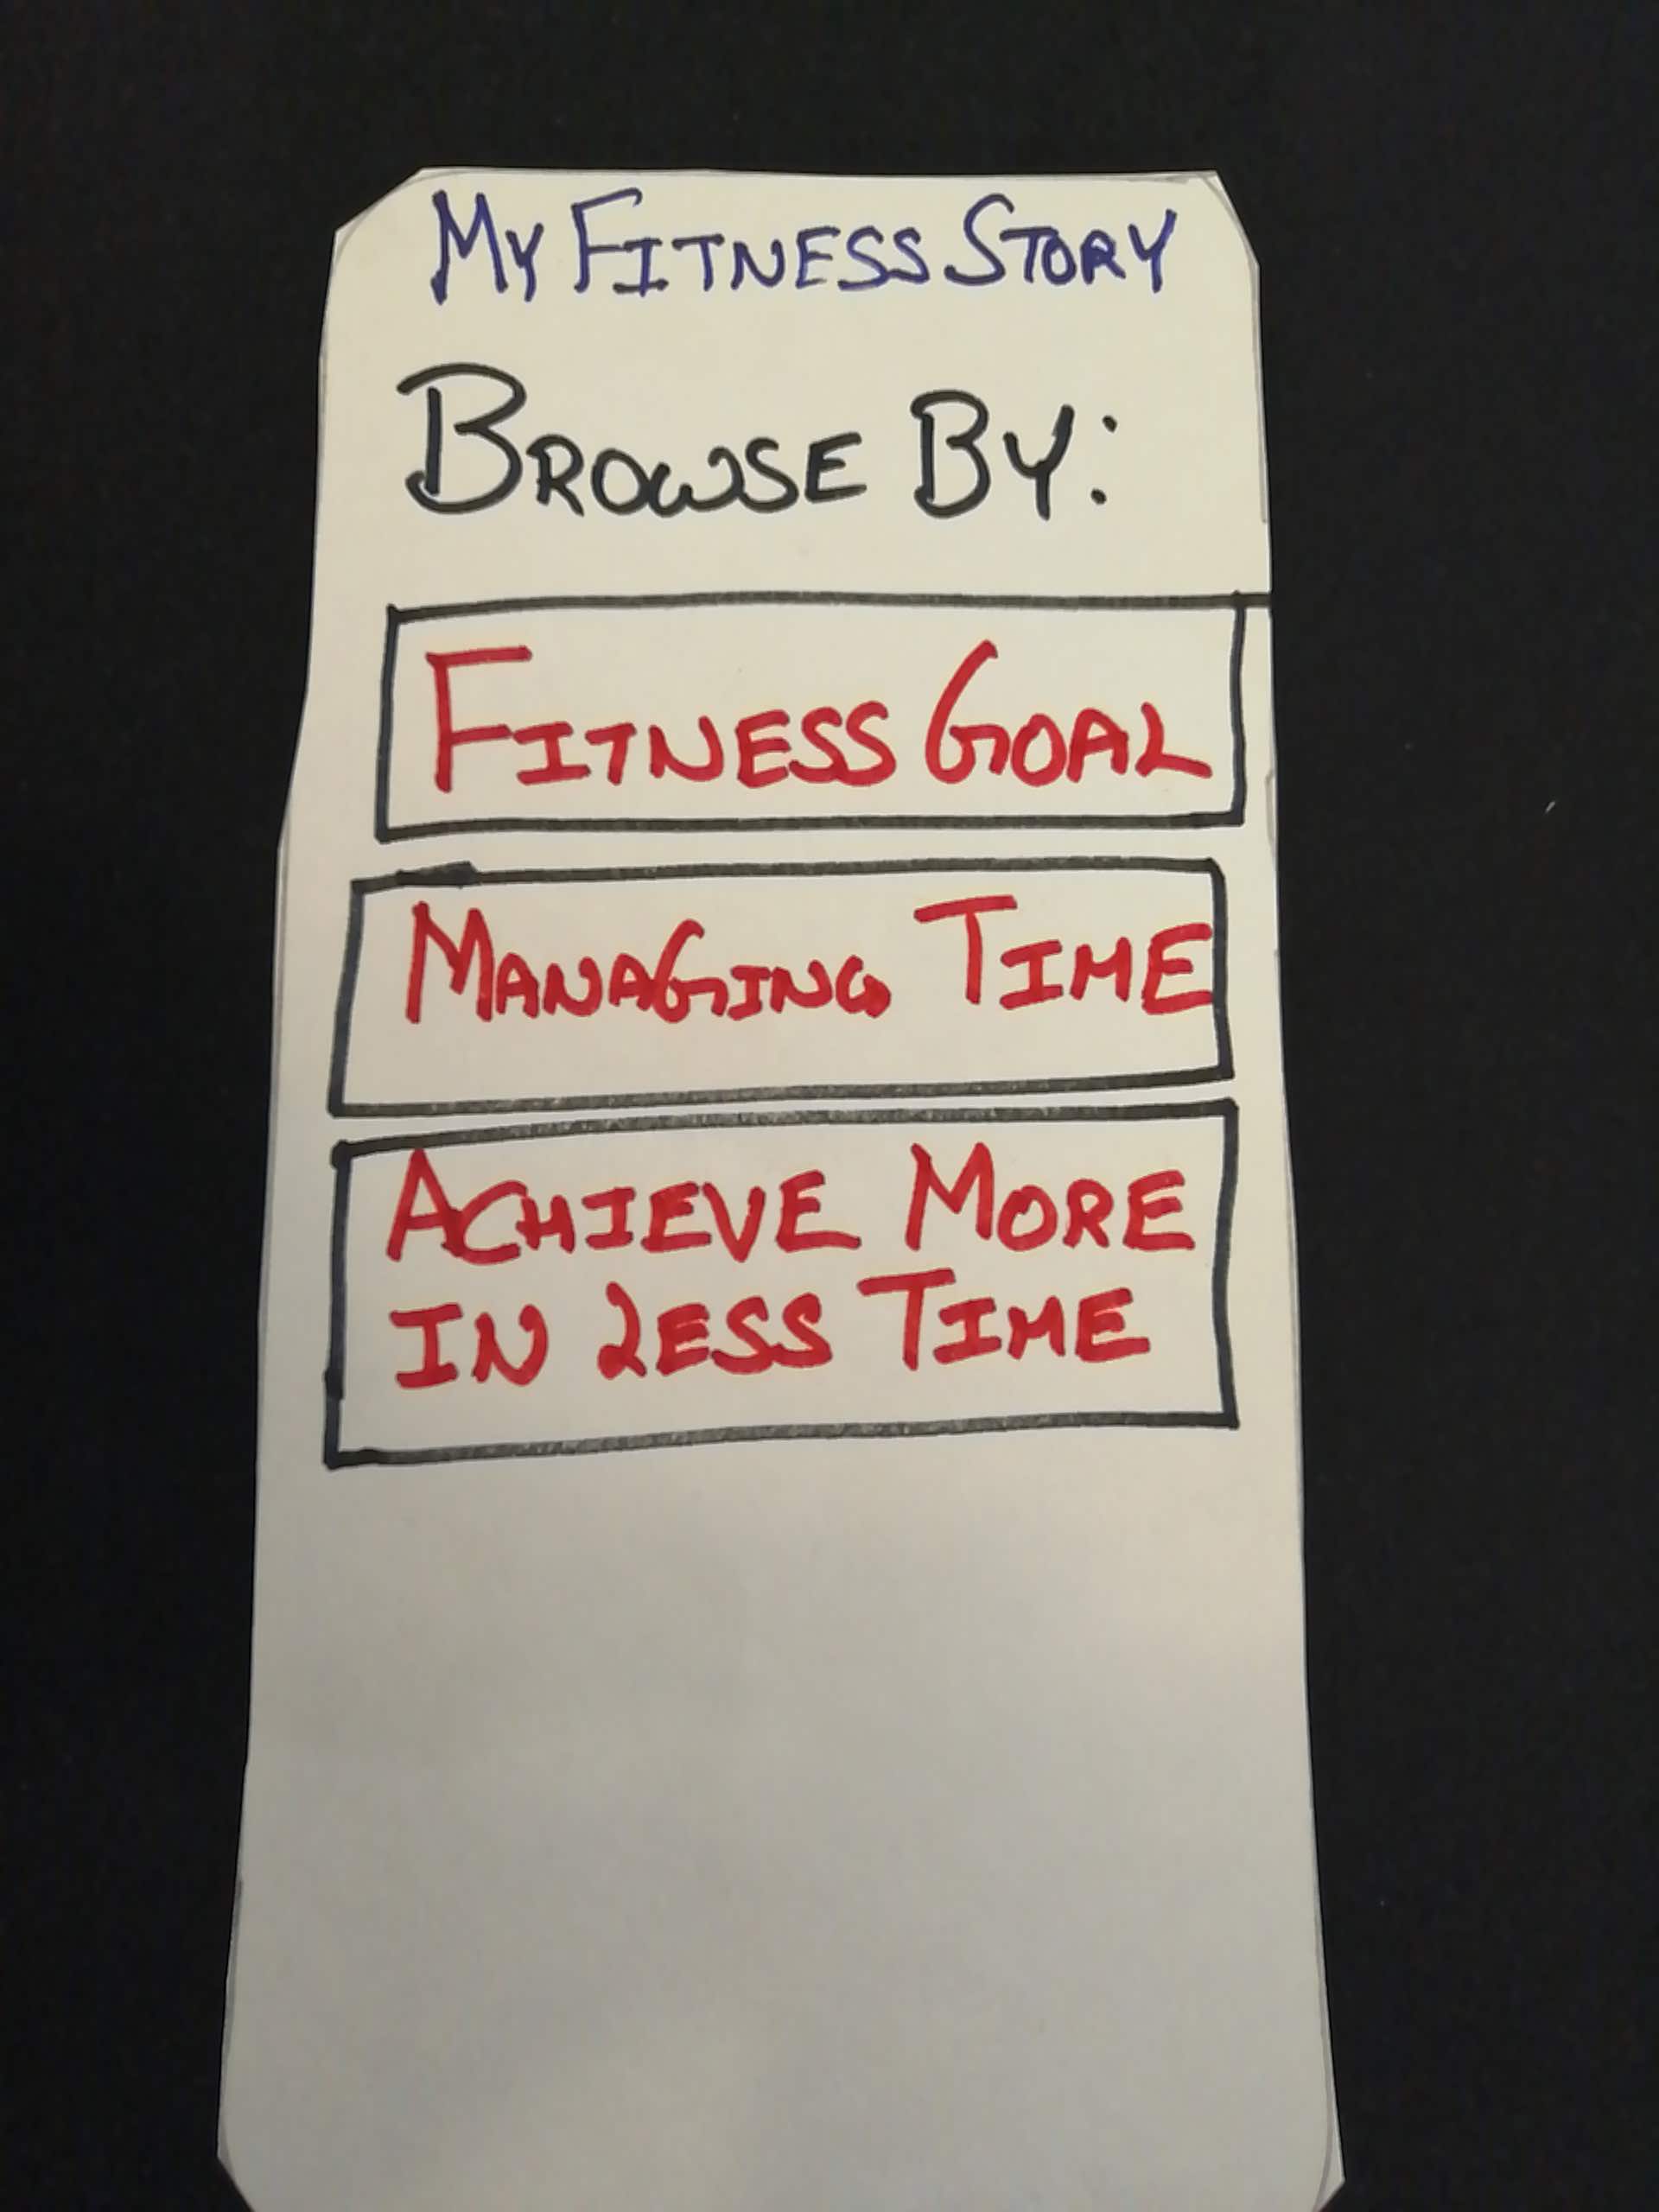 MY FITNESS STORY
BROWSE BY:
FITNESS GOAL
MANAGING TIME
ACHIEVE MORE
IN LESS TIME